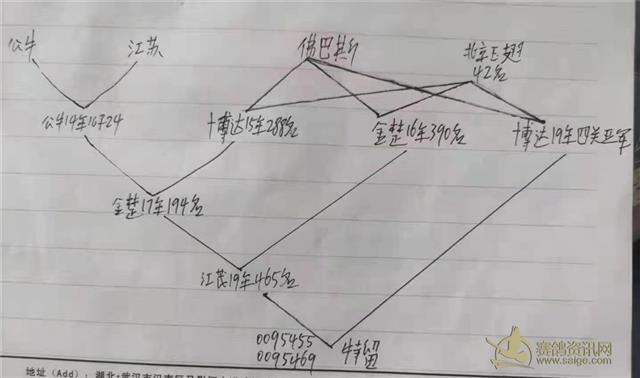 公牛
江苏
佛巴斯
北京E翅
42名
公牛14年16724
博达15年288名
金楚16年390名
博达19年四关亚军
金楚17年194名
江民19年465名
0095455
0095469
特留
地址(Add):湖北·武汉市汉南区
赛鸽资讯网
www.saige.com